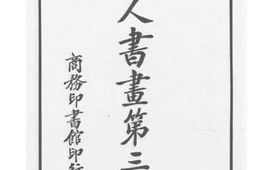 人書畫第三
商務印書館印行